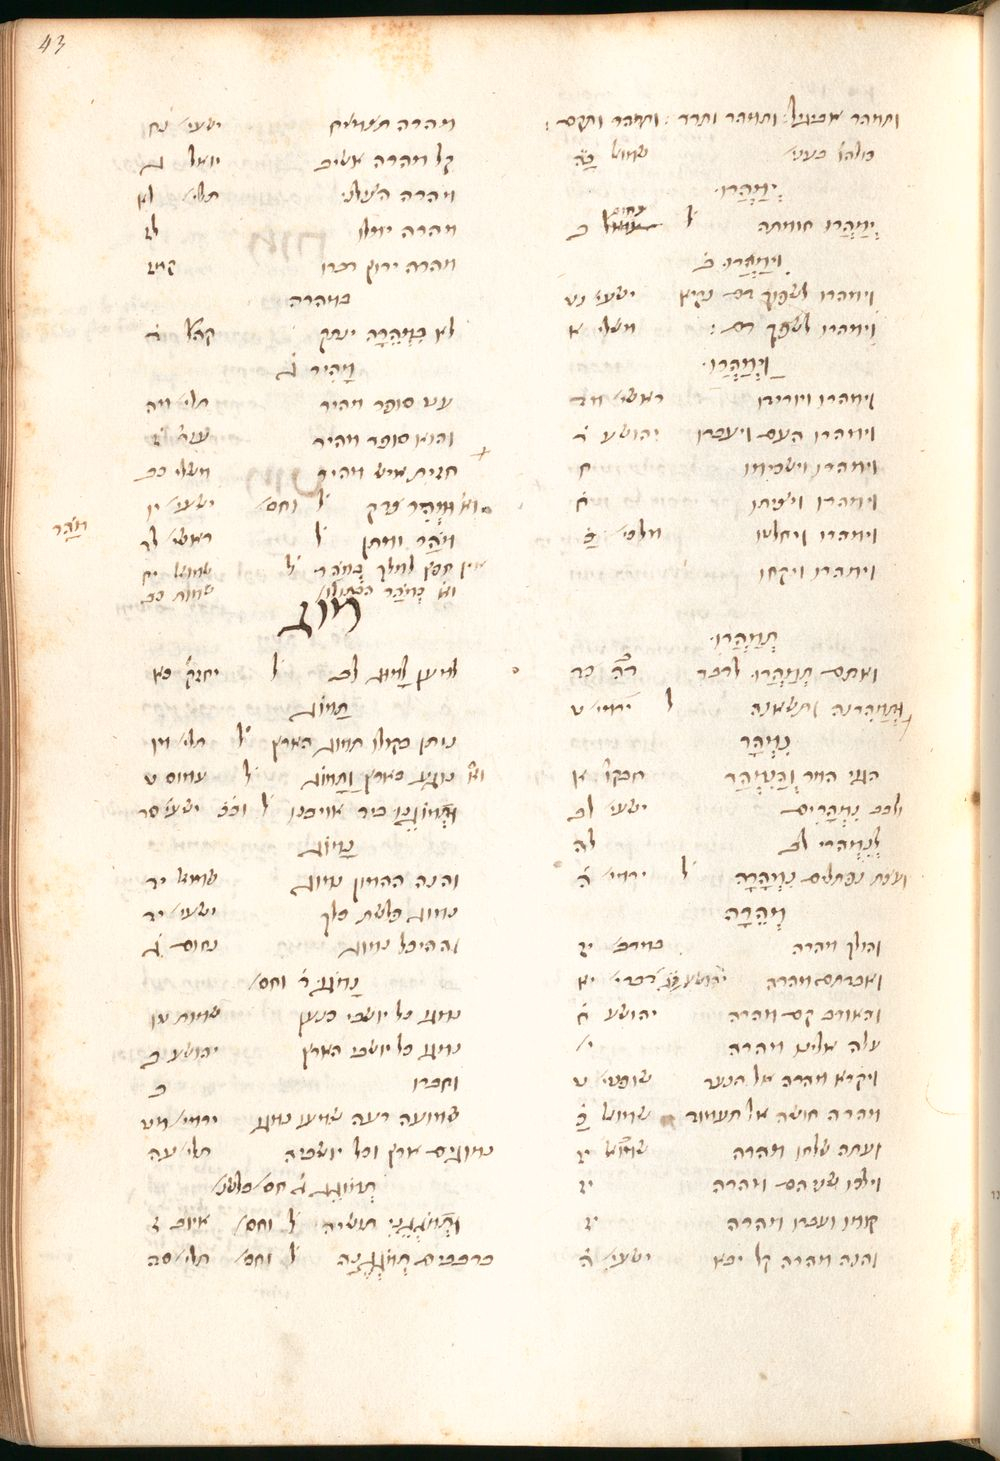 43
ותמהר אביגיל : ותמהר ותרד : ותמהר ותקם :
כולהו בעני׳ שמוא׳ כה
יְמַהֲרוּ
יְמַהֲרוּ חומתה ל׳ נחום ב
וִימַהֲרוּ ב׳
וימהרו לשפוך דם נקיא ישעי׳ נט
וימהרו לשפך דם : משלי א
וַיְמַהֲרוּ
וימהרו ויורידו ראשי׳ מד
וימהרו העם ויעברו יהושע ד
וימהרו וישכימו ח
וימהרו ויציתו ח
וימהרו ויחלטו מלכי׳ כ
וימהרו ויקחו
תְמַהֲרוּ
ואתם תְמַהֲרוּ לדבר כה
וּתְמַהֵרְנָה ותשאנה ל׳ ירמי׳ ט
נִמְהָר
הגוי המר וְהַנִמְהָר חבקו׳ א
ולבב נִמְהָרִים ישעי׳ לב
לְנִמְהֲרֵי לב לה
ועצת נפתלים נִמְהָרָה ל׳ איוב ה
מְהֵרָה
והולך מהרה במדב׳ יז
ואבדתם מהרה יהושע כג דברי׳ יא
והאורב קם מהרה יהושע ח
עלה אלינו מהרה י׳
ויקרא מהרה אל הנער שופטי׳ ט
מהרה חושה אל תעמוד שמוא׳ כ
ועתה שלחו מהרה שמוא׳ יז
וילכו שניהם מהרה יז
קומו ועברו מהרה יז
והנה מהרה קל יבא ישעי׳ ה
מהרה תצמיח ישעי׳ נח
קל מהרה אשיב יואל ד
מהרה הצילני תלי׳ לא
מהרה ימלו לז
מהרה ירוץ דברו קמז
במהרה
לא בִמְהֵרָה ינתק קהל׳ ד
מָהִיר ד׳
עט סופר מהיר תלי׳ מה
והוא סופר מהיר עזר׳ ז
חזית איש מהיר משלי כב
וא׳ וּמְהִר צדק ל׳ וחס׳ ישעי׳ יו
מֹהַר ומתן ל׳ ראשי׳ לד
מֹהַר
אין חפץ למלך בְמֹהַר ל׳ שמוא׳ יח
וא׳ כְמֹהַר הבתולו׳ שמות כב
מוג
למען לָמוּג לב ל׳ יחזק׳ כא
תָמוּג
נותן בקולו תמוג הארץ ל׳ תלי׳ מו
וא׳ נוגע בארץ וַתָמוֹג ל׳ עמוס ט
וַתְמוּגֵנוּ ביד עוננו ל׳ ישעי׳ סד
נָמוֹג
והנה ההמון נמוג שמוא׳ יד
נמוג פלשת כלך ישעי׳ יד
וההיכל נמוג נחום ב
נָמֹגוּ ד׳ וחס׳
נמגו כל יושבי כנען שמות טו
נמגו כל יושבי הארץ יהושע ב
וחברו ב
שמועה רעה שמעו נמגו ירמי׳ מט
נמוגים ארץ וכל יושביה תלי׳ עה
תְמֹגֵג חס׳
וּתְמֹגְגֵנִי תושיה ל׳ וחס׳ איוב ל
ברביבים תְמֹגְגֶנָּה ל׳ וחס׳ תלי׳ סה